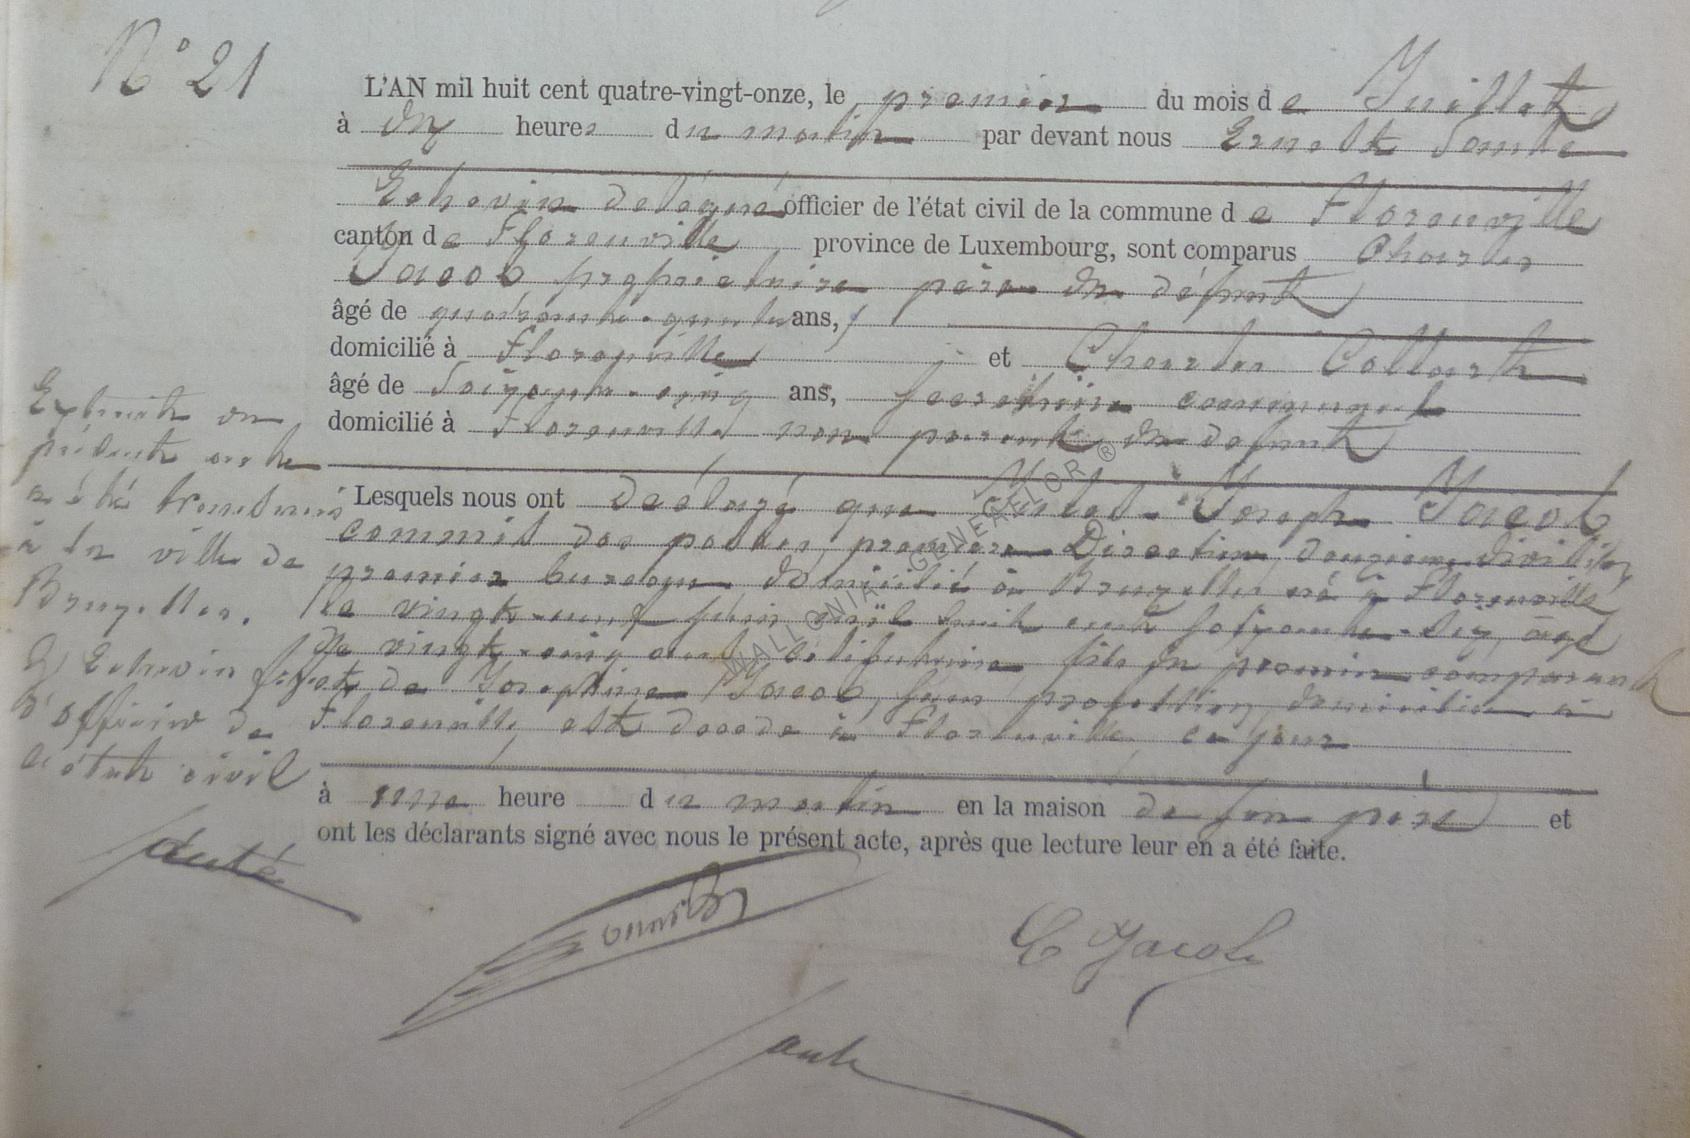 N° 21
L'AN mil huit cent quatre-vingt-onze, le premier du mois de Juillet
à dix heures du matin par devant nous Ernest
Echevin délégué officier de l'état civil de la commune de Florenville
canton de Florenville province de Luxembourg, sont comparus Charles
Jacob propriétaire père du défunt
âgé de quarante- ans,
domicilié à Florenville et Charles Collart
âgé de Soixante-cinq ans, secrétaire communal
domicilié à Florenville non parent du defunt
Lesquels nous ont déclaré que Jules-Joseph Jacob
commis des postes, première Direction, douzième division,
premier bureau domicilié à Bruxelles né à Florenville
le vingt-neuf juin mil huit cent soixante-six, âgé
de vingt-cinq ans célibataire fils du premier comparant
et de Josephine Jacob, sans profession, domiciliée à
Florenville, est décédé à Florenville, ce jour
à une heure du matin en la maison de son père et
ont les déclarants signé avec nous le présent acte, après que lecture leur en a été faite.
Extrait du
présent acte
a été transmis
à la ville de
Bruxelles.
L'Echevin
d'officier de
l'état civil
C Jacob
WALLONIA GENEAFLOR ®